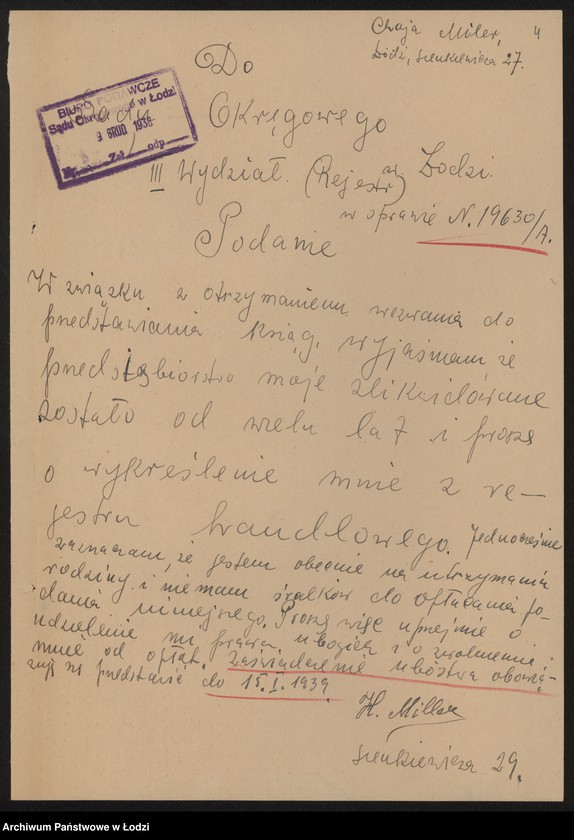 Chaja Miler, 4
Łódź, Sienkiewicza 27.
Do
BIURO PODAWCZE
Sądu Okręgowego w Łodzi
9 GRUD 1938
Zał. odp
Sądu
Okręgowego
III Wydział. (Rejestr) w Łodzi.
w sprawie N. 19630/A.
Podanie
W związku z otrzymaniem wezwania do
przedstawiania ksiąg, wyjaśniam, że
przedsiębiorstwo moje zlikwidowane
zostało od wielu lat i proszę
o wykreślenie mnie z re-
jestru handlowego. Jednocześnie
zaznaczam, że jestem obecnie na utrzymaniu
rodziny i nie mam środków do opłacenia po-
dania niniejszego. Proszę więc uprzejmie o
udzielenie mi prawa ubogich i o zwolnienie
mnie od opłat. Zaświadczenie ubóstwa obowią-
zuję się przedstawić do 15.I.1939.
H. Miller
Sienkiewicza 29.
Archiwum Państwowe w Łodzi